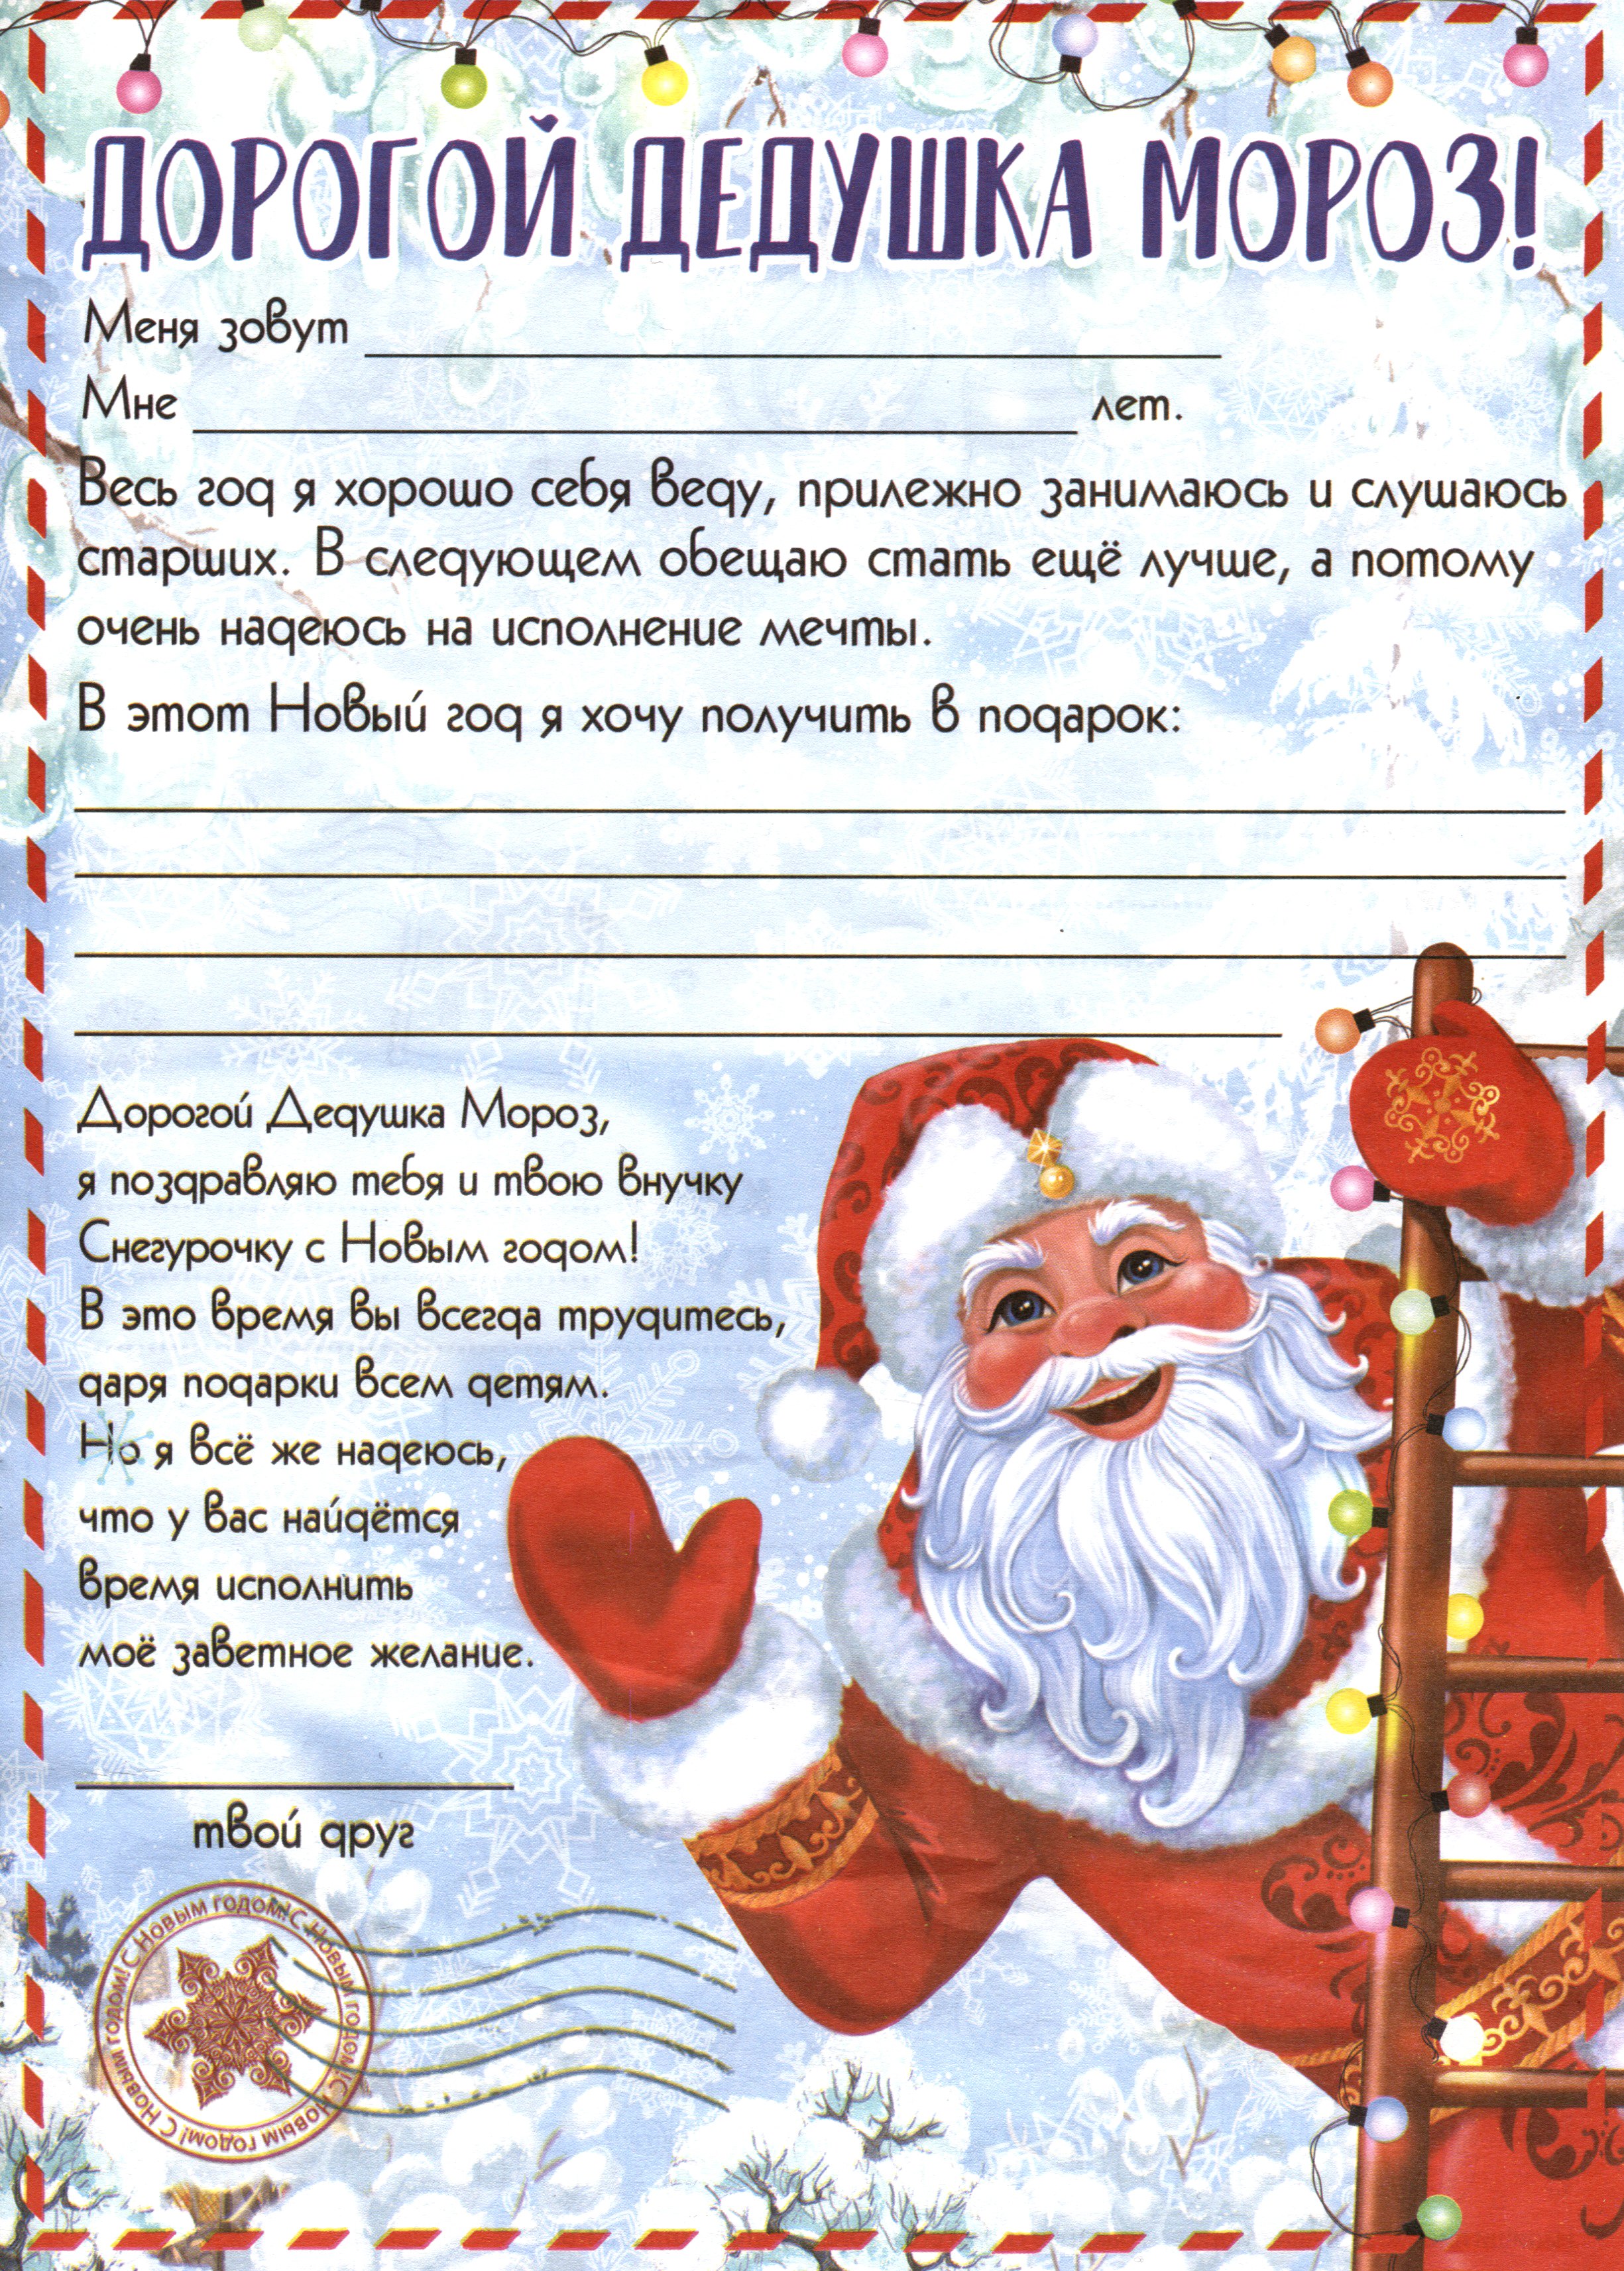 ДОРОГОЙ ДЕДУШКА МОРОЗ!
Меня зовут
Мне лет.
Весь год я хорошо себя веду, прилежно занимаюсь и слушаюсь
старших. В следующем обещаю стать ещё лучше, а потому
очень надеюсь на исполнение мечты.
В этот Новый год я хочу получить в подарок:
Дорогой Дедушка Мороз,
я поздравляю тебя и твою внучку
Снегурочку с Новым годом!
В это время вы всегда трудитесь,
даря подарки всем детям.
Но я всё же надеюсь,
что у вас найдётся
время исполнить
моё заветное желание.
твой друг
С Новым годом! С Новым годом! С Новым годом! С Новым годом!